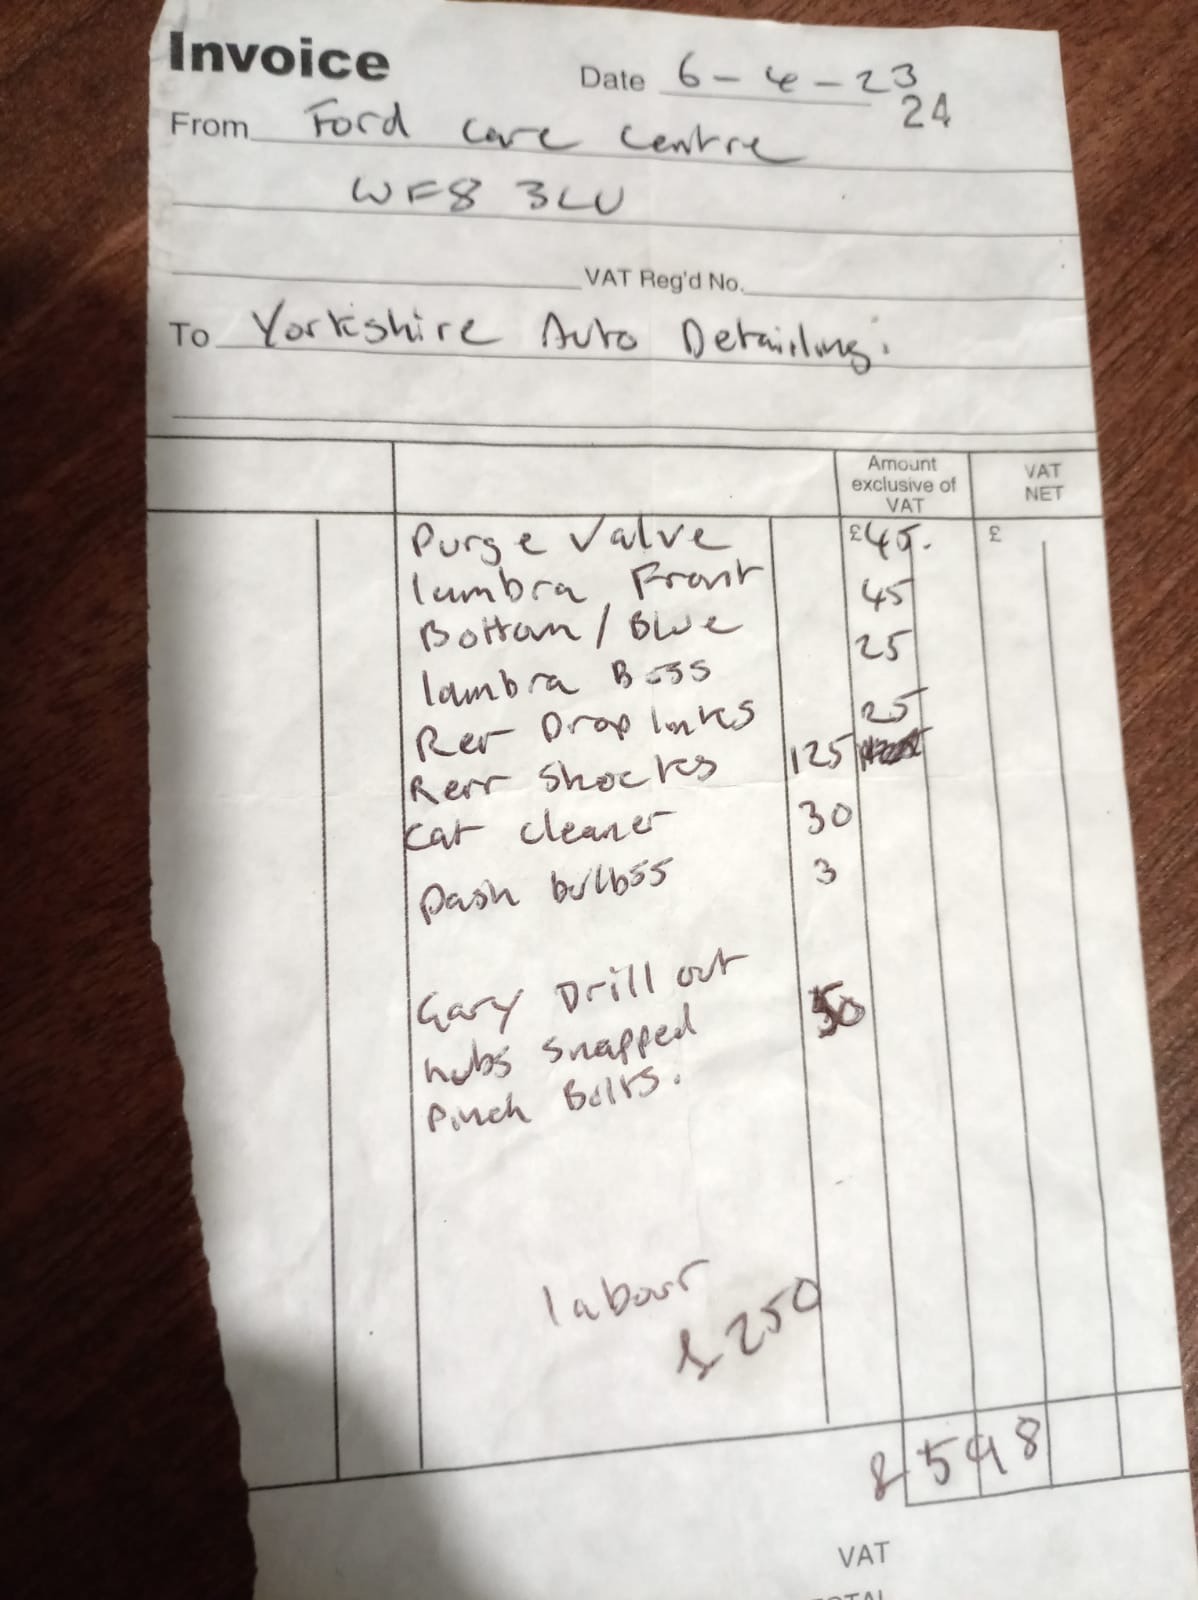 Invoice
Date 6-4-23
24
From Ford Care Centre
WF8 3LU
VAT Reg'd No.
To Yorkshire Auto Detailing.
Amount exclusive of VAT
VAT NET
Purge Valve £45.
lambra Front 45
Bottom / Blue 25
lambra Boss
Rer Drop links 25
Rerr Shocks 125
Cat cleaner 30
Dash bulbss 3
Gary Drill out 50
hubs snapped
Pinch Bolts.
labour
£250
£598
£
VAT
TOTAL